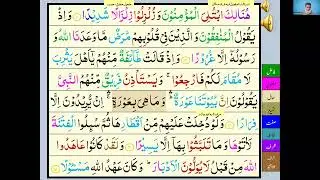 هُنَالِكَ ابْتُلِيَ الْمُؤْمِنُوْنَ وَ زُلْزِلُوْا زِلْزَالًا شَدِيْدًا ۝ وَ اِذْ
يَقُوْلُ الْمُنٰفِقُوْنَ وَ الَّذِيْنَ فِيْ قُلُوْبِهِمْ مَّرَضٌ مَّا وَعَدَنَا اللّٰهُ وَ
رَسُوْلُهٗۤ اِلَّا غُرُوْرًا ۝ وَ اِذْ قَالَتْ طَّآئِفَةٌ مِّنْهُمْ يٰۤاَهْلَ يَثْرِبَ
لَا مُقَامَ لَكُمْ فَارْجِعُوْا ۚ وَ يَسْتَاْذِنُ فَرِيْقٌ مِّنْهُمُ النَّبِيَّ
يَقُوْلُوْنَ اِنَّ بُيُوْتَنَا عَوْرَةٌ ؕۛ وَ مَا هِيَ بِعَوْرَةٍ ۛۚ اِنْ يُّرِيْدُوْنَ اِلَّا
فِرَارًا ۝ وَ لَوْ دُخِلَتْ عَلَيْهِمْ مِّنْ اَقْطَارِهَا ثُمَّ سُىِٕلُوا الْفِتْنَةَ
لَاٰتَوْهَا وَ مَا تَلَبَّثُوْا بِهَاۤ اِلَّا يَسِيْرًا ۝ وَ لَقَدْ كَانُوْا عَاهَدُوا
اللّٰهَ مِنْ قَبْلُ لَا يُوَلُّوْنَ الْاَدْبَارَ ؕ وَ كَانَ عَهْدُ اللّٰهِ مَسْـُٔوْلًا ۝